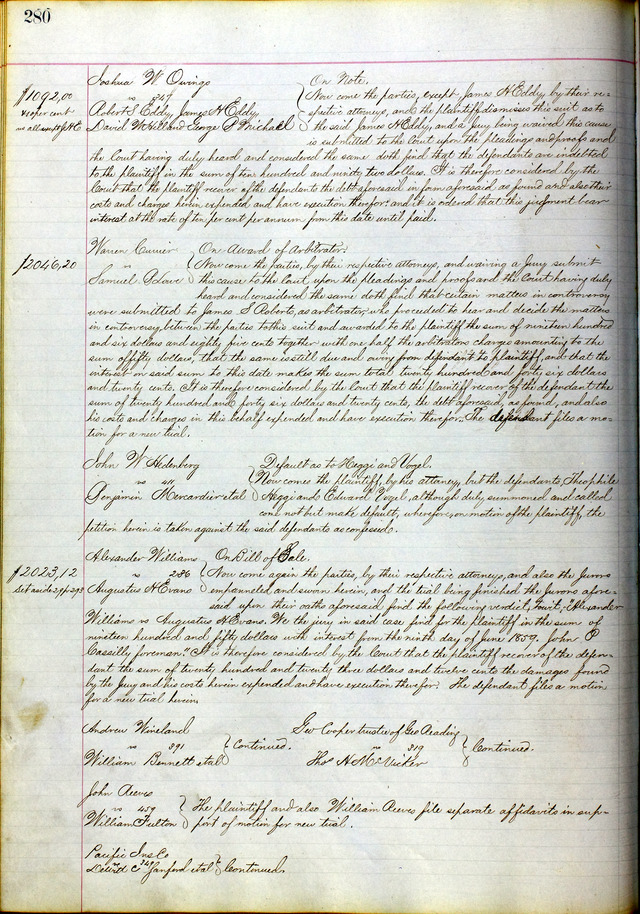 280
Joshua W Owings
vs 347
Robert S Eddy, James H Eddy,
David W Hill and George P Michael
On Note.
$1092,00
10 per cent
Now come the parties, except James H Eddy, by their re-
spective attorneys, and the plaintiff dismisses this suit as to
the said James H Eddy, and a Jury being waived this cause
is submitted to the Court upon the pleadings and proofs and
the Court having duly heard and considered the same doth find that the defendants are indebted
to the plaintiff in the sum of ten hundred and ninety two dollars. It is therefore considered by the
Court that the plaintiff recover of the defendants the debt aforesaid in form aforesaid as found and also their
costs and charges herein expended and have execution therefor: and it is ordered that this judgment bear
interest at the rate of ten per cent per annum from this date until paid.
Warren Currier On Award of Arbitrator:
$2046,20
vs
Samuel
Now come the parties, by their respective attorneys, and waiving a Jury submit
this cause to the Court upon the pleadings and proofs and the Court having duly
heard and considered the same doth find that certain matters in controversy
were submitted to James S Roberts, as arbitrator, who proceeded to hear and decide the matters
in controversy between the parties to this suit and awarded to the plaintiff the sum of nineteen hundred
and six dollars and eighty five cents together with one half the arbitrators charge amounting to the
sum of fifty dollars, that the same is still due and owing from defendant to plaintiff, and that the
interest on said sum to this date makes the sum total twenty hundred and forty six dollars
and twenty cents. It is therefore considered by the Court that the plaintiff recover of the defendant the
sum of twenty hundred and forty six dollars and twenty cents, the debt aforesaid, as found, and also
his costs and charges in this behalf expended and have execution therefor. The defendant files a mo-
tion for a new trial.
John W Hedenberg
vs 411
Benjamin Mercardier et al
Default as to Heggi and Vogel.
Now comes the plaintiff, by his attorney, but the defendants, Theophile
Heggi and Eduard Vogel, although duly summoned and called
come not but make default, wherefore, on motion of the plaintiff, the
petition herein is taken against the said defendants as confessed.
Alexander Williams On Bill of Sale.
$2023,12
set aside
vs 286
Augustus H Evans
Now come again the parties, by their respective attorneys, and also the Jurors
empannelled and sworn herein, and the trial being finished the Jurors afore-
said upon their oaths aforesaid find the following verdict, towit, "Alexander
Williams vs Augustus H Evans. We the jury in said case find for the plaintiff in the sum of
nineteen hundred and fifty dollars with interest from the ninth day of June 1859. John P
Cassilly foreman." It is therefore considered by the Court that the plaintiff recover of the defen-
dant the sum of twenty hundred and twenty three dollars and twelve cents the damages found
by the Jury and his costs herein expended and have execution therefor: The defendant files a motion
for a new trial herein.
Andrew Wineland
vs 391
William Bennett et al
Continued.
Geo Cooper trustee of Geo Reading
vs 319
Thos H McVicker
Continued.
John Reeves
vs 459
William Fulton
The plaintiff and also William Reeves file separate affidavits in sup-
port of motion for new trial.
Pacific Ins Co
vs 349
David C Sanford et al Continued.